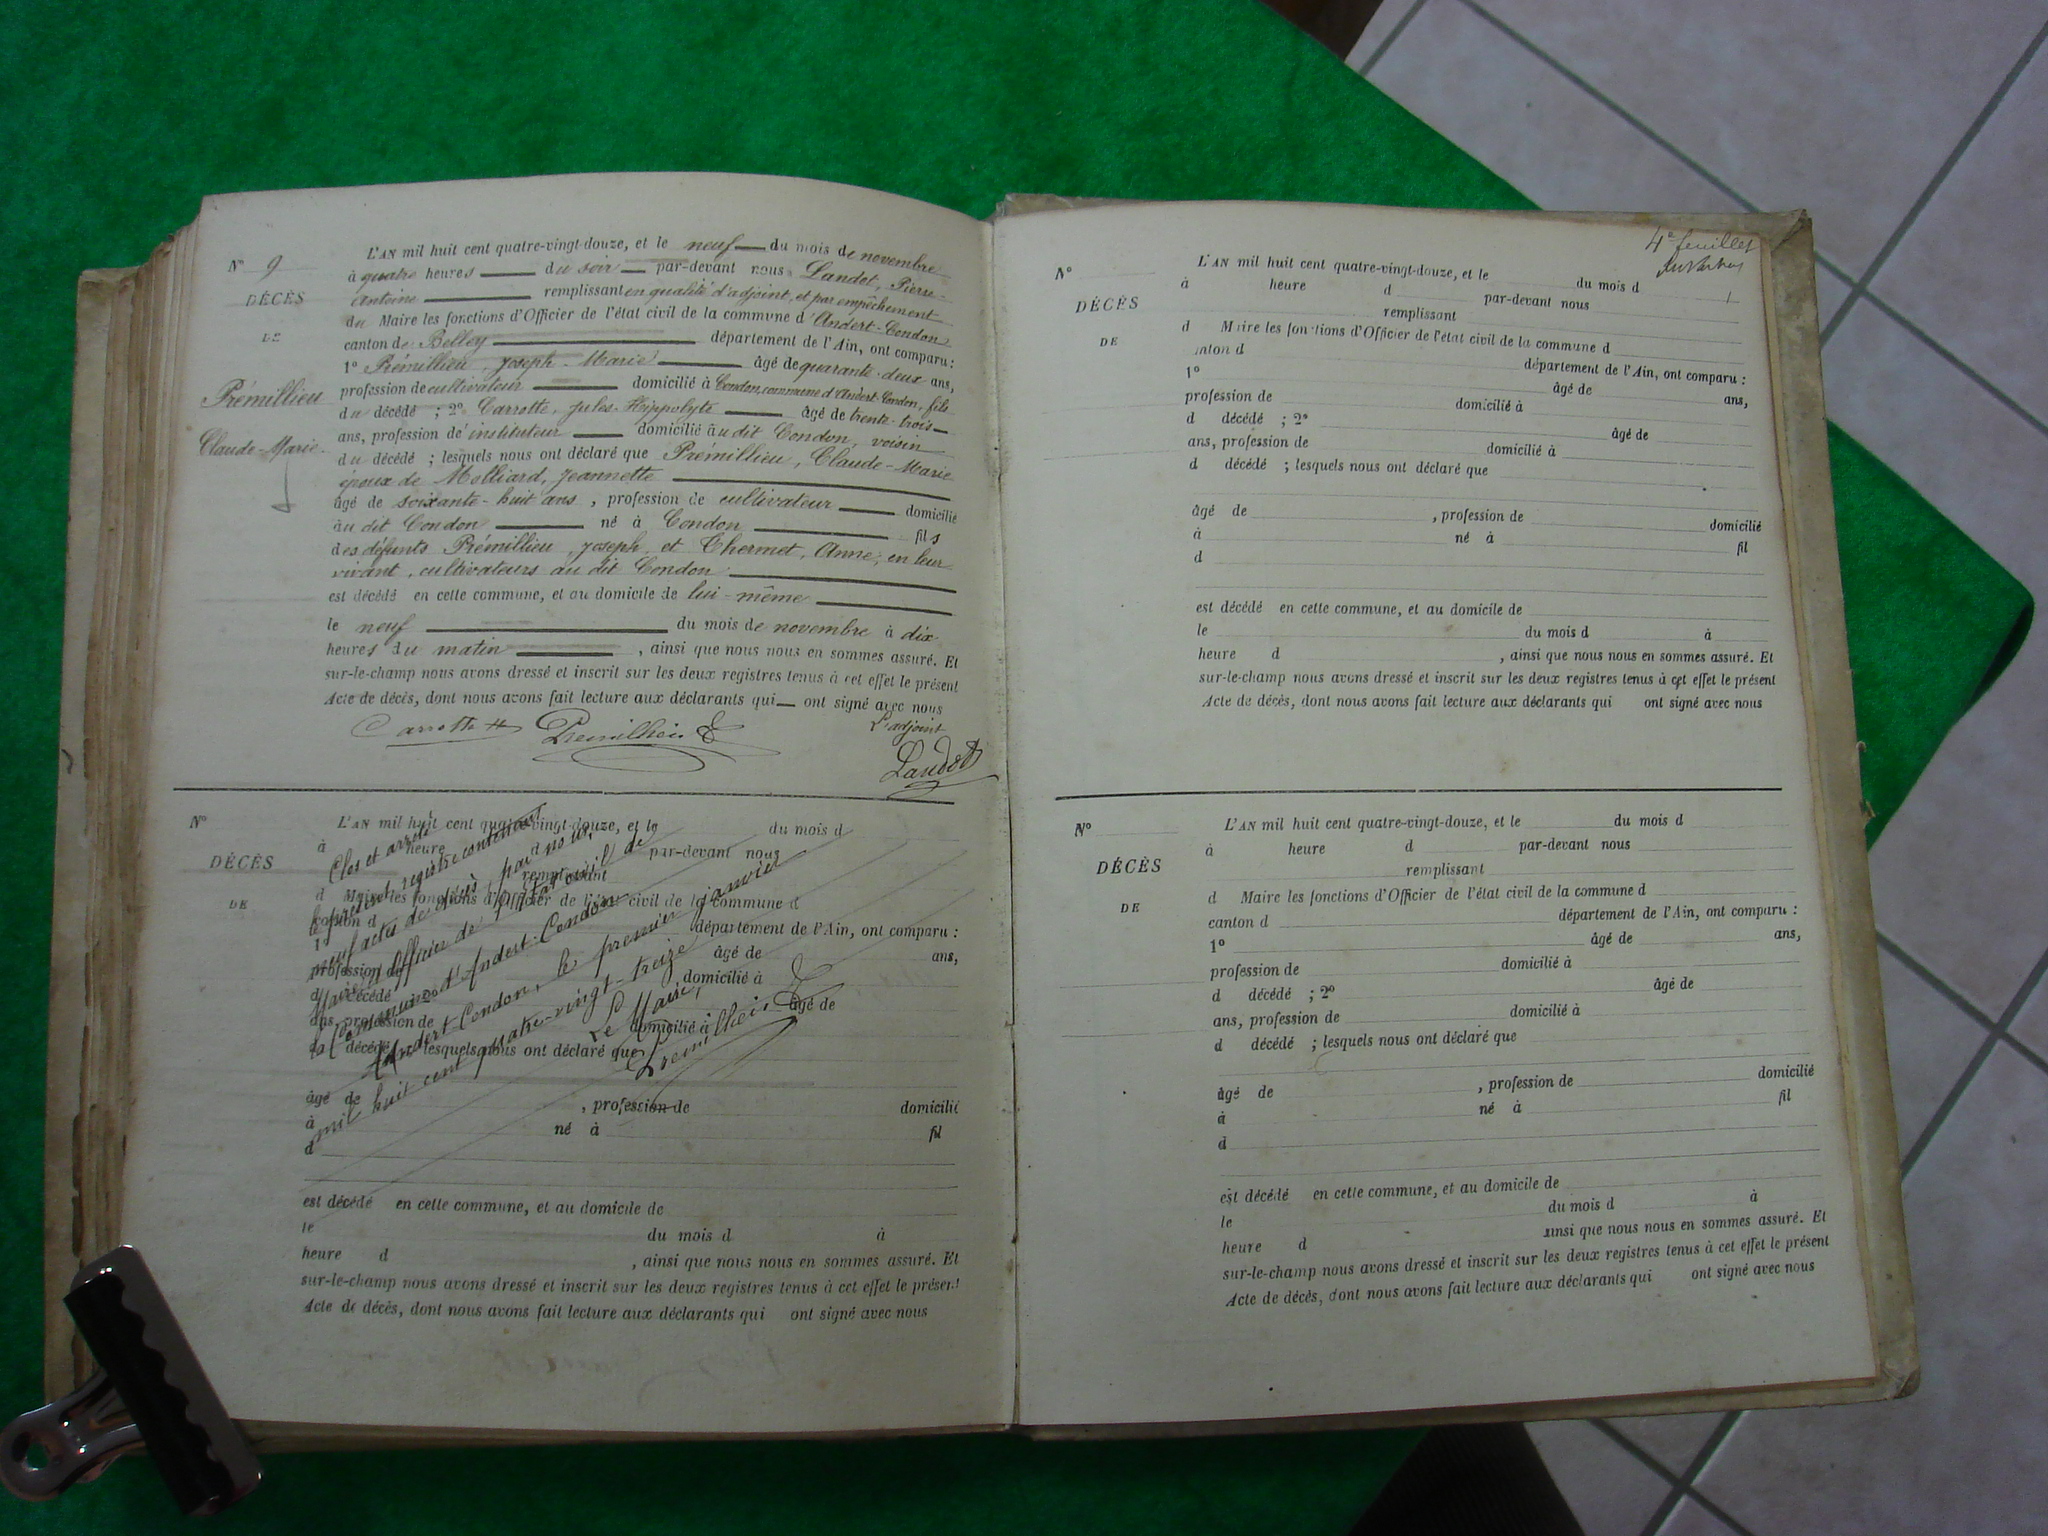 N° 9
DÉCÈS
DE
Prémillieu
Claude-Marie
L'AN mil huit cent quatre-vingt-douze, et le neuf du mois de novembre
à quatre heures du soir par-devant nous Landet, Pierre-
Antoine remplissant en qualité d'adjoint, et par empêchement
du Maire les fonctions d'Officier de l'état civil de la commune d'Andert-Condon
canton de Belley département de l'Ain, ont comparu :
1° Prémillieu, Joseph-Marie âgé de quarante-deux ans,
profession de cultivateur domicilié à Condon, commune d'Andert-Condon, fils
du décédé ; 2° Carrotte, Jules-Hippolyte âgé de trente-trois
ans, profession d'instituteur domicilié au dit Condon, voisin
du décédé ; lesquels nous ont déclaré que Prémillieu, Claude-Marie
époux de Molliard, Jeannette
âgé de soixante-huit ans, profession de cultivateur domicilié
au dit Condon né à Condon fils
des défunts Prémillieu, Joseph et Thermet, Anne, en leur
vivant, cultivateurs au dit Condon
est décédé en cette commune, et au domicile de lui-même
le neuf du mois de novembre à dix
heures du matin, ainsi que nous nous en sommes assuré. Et
sur-le-champ nous avons dressé et inscrit sur les deux registres tenus à cet effet le présent
Acte de décès, dont nous avons fait lecture aux déclarants qui ont signé avec nous
Carrotte Premillieu L'adjoint
Landet
N°
DÉCÈS
DE
L'AN mil huit cent quatre-vingt-douze, et le du mois d
à heure d par-devant nous
remplissant
d Maire les fonctions d'Officier de l'état civil de la commune d
canton d département de l'Ain, ont comparu :
1° âgé de ans,
profession de domicilié à
d décédé ; 2° âgé de
ans, profession de domicilié à
d décédé ; lesquels nous ont déclaré que
âgé de , profession de domicilié
à né à fil
d
est décédé en cette commune, et au domicile de
le du mois d à
heure d , ainsi que nous nous en sommes assuré. Et
sur-le-champ nous avons dressé et inscrit sur les deux registres tenus à cet effet le présent
Acte de décès, dont nous avons fait lecture aux déclarants qui ont signé avec nous
Clos et arrêté
le présent registre contenant
neuf actes de décès, par nous,
Maire, officier de l'état civil de
la Commune d'Andert-Condon
Andert Condon, le premier janvier
mil huit cent quatre-vingt-treize
Le Maire,
Premillieu
4e feuillet
N°
DÉCÈS
DE
L'AN mil huit cent quatre-vingt-douze, et le du mois d
à heure d par-devant nous
remplissant
d Maire les fonctions d'Officier de l'état civil de la commune d
anton d département de l'Ain, ont comparu :
1° âgé de ans,
profession de domicilié à
d décédé ; 2° âgé de
ans, profession de domicilié à
d décédé ; lesquels nous ont déclaré que
âgé de , profession de domicilié
à né à fil
d
est décédé en cette commune, et au domicile de
le du mois d à
heure d , ainsi que nous nous en sommes assuré. Et
sur-le-champ nous avons dressé et inscrit sur les deux registres tenus à cet effet le présent
Acte de décès, dont nous avons fait lecture aux déclarants qui ont signé avec nous
N°
DÉCÈS
DE
L'AN mil huit cent quatre-vingt-douze, et le du mois d
à heure d par-devant nous
remplissant
d Maire les fonctions d'Officier de l'état civil de la commune d
canton d département de l'Ain, ont comparu :
1° âgé de ans,
profession de domicilié à
d décédé ; 2° âgé de
ans, profession de domicilié à
d décédé ; lesquels nous ont déclaré que
âgé de , profession de domicilié
à né à fil
d
est décédé en cette commune, et au domicile de
le du mois d à
heure d ainsi que nous nous en sommes assuré. Et
sur-le-champ nous avons dressé et inscrit sur les deux registres tenus à cet effet le présent
Acte de décès, dont nous avons fait lecture aux déclarants qui ont signé avec nous